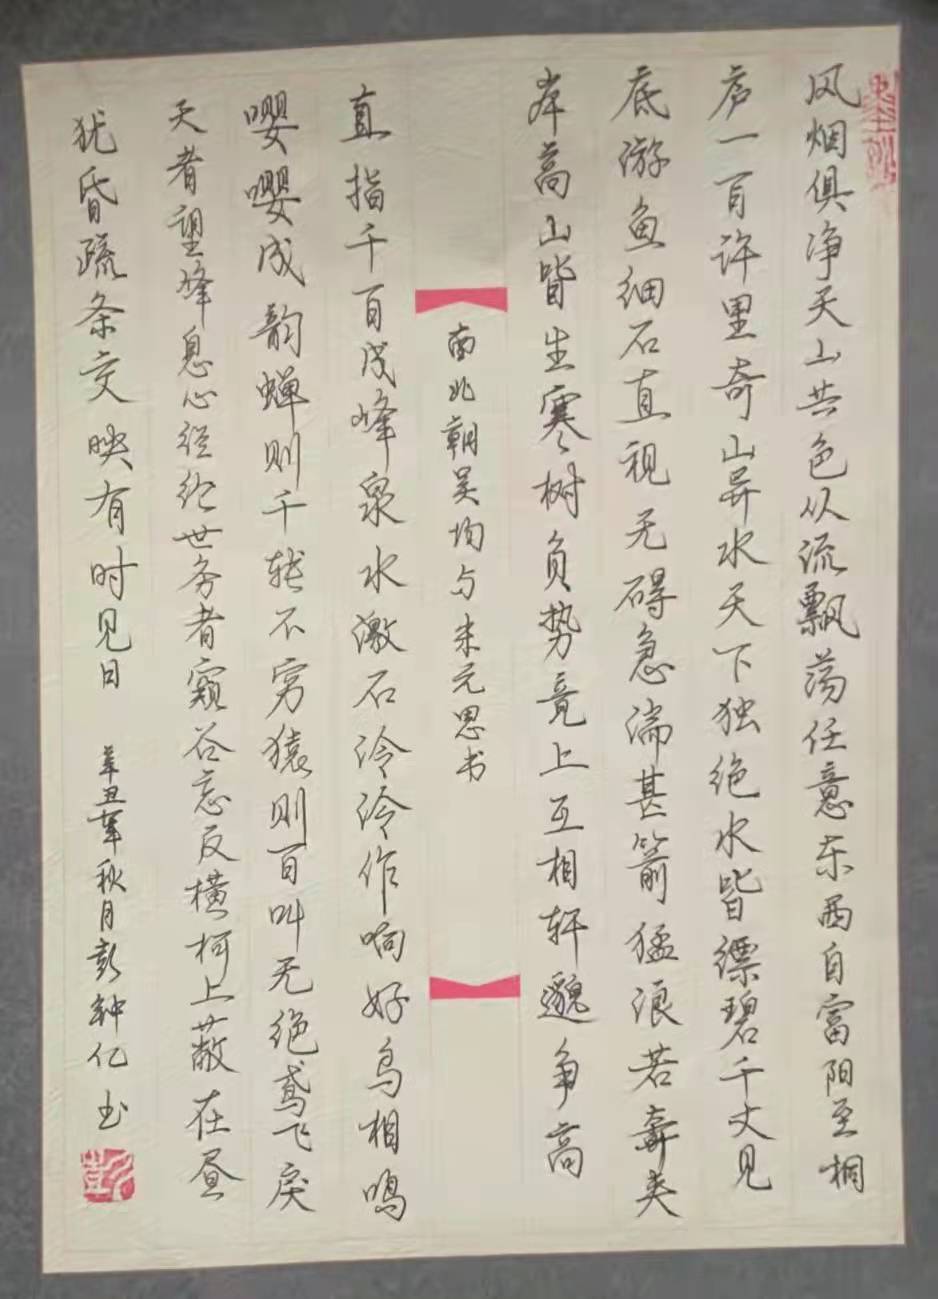 风烟俱净天山共色从流飘荡任意东西自富阳至桐
庐一百许里奇山异水天下独绝水皆缥碧千丈见
底游鱼细石直视无碍急湍甚箭猛浪若奔夹
岸高山皆生寒树负势竞上互相轩邈争高
南北朝吴均与朱元思书
直指千百成峰泉水激石泠泠作响好鸟相鸣
嘤嘤成韵蝉则千转不穷猿则百叫无绝鸢飞戾
天者望峰息心经纶世务者窥谷忘反横柯上蔽在昼
犹昏疏条交映有时见日
辛丑年秋月彭钟亿书